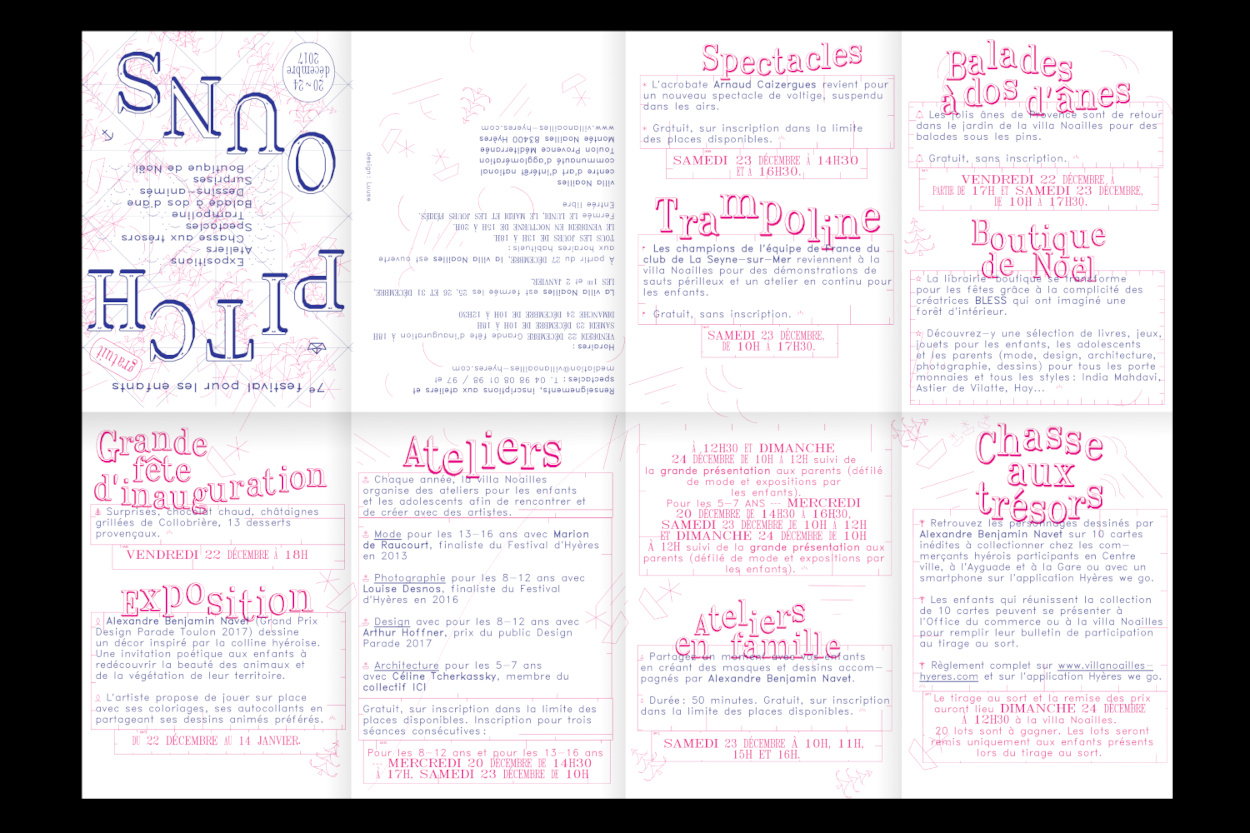 7e festival pour les enfants
gratuit
PITCH
Expositions
Ateliers
Chasse aux trésors
Spectacles
Trampoline
Balade à dos d'âne
Dessins-animés
Surprises
Boutique de Noël
OUNS
20~24
décembre
2017
Renseignements, inscriptions aux ateliers et
spectacles : T. 04 98 08 01 98 / 97 et
mediation@villanoailles-hyeres.com
Horaires :
VENDREDI 22 DÉCEMBRE Grande fête d'inauguration À 18H
SAMEDI 23 DÉCEMBRE DE 10H À 18H
DIMANCHE 24 DÉCEMBRE DE 10H À 12H30
La villa Noailles est fermée les 25, 26 ET 31 DÉCEMBRE,
LES 1er et 2 JANVIER.
À partir du 27 DÉCEMBRE, la villa Noailles est ouverte
aux horaires habituels :
TOUS LES JOURS DE 13H À 18H
LE VENDREDI EN NOCTURNE DE 15H À 20H.
Fermée LE LUNDI, LE MARDI ET LES JOURS FÉRIÉS.
Entrée libre
villa Noailles
centre d'art d'intérêt national
communauté d'agglomération
Toulon Provence Méditerranée
Montée Noailles 83400 Hyères
www.villanoailles-hyeres.com
design : Liouse
Spectacles
L'acrobate Arnaud Caizergues revient pour
un nouveau spectacle de voltige, suspendu
dans les airs.
Gratuit, sur inscription dans la limite
des places disponibles.
SAMEDI 23 DÉCEMBRE À 14H30
ET À 16H30.
Trampoline
Les champions de l'équipe de France du
club de La Seyne-sur-Mer reviennent à la
villa Noailles pour des démonstrations de
sauts périlleux et un atelier en continu pour
les enfants.
Gratuit, sans inscription.
SAMEDI 23 DÉCEMBRE,
DE 10H À 17H30.
Balades
à dos d'ânes
Les jolis ânes de Provence sont de retour
dans le jardin de la villa Noailles pour des
balades sous les pins.
Gratuit, sans inscription.
VENDREDI 22 DÉCEMBRE, À
PARTIR DE 17H ET SAMEDI 23 DÉCEMBRE,
DE 10H À 17H30.
Boutique
de Noël
La librairie-boutique se transforme
pour les fêtes grâce à la complicité des
créatrices BLESS qui ont imaginé une
forêt d'intérieur.
Découvrez-y une sélection de livres, jeux,
jouets pour les enfants, les adolescents
et les parents (mode, design, architecture,
photographie, dessins) pour tous les porte
monnaies et tous les styles : India Mahdavi,
Astier de Vilatte, Hay...
Grande
fête
d'inauguration
Surprises, chocolat chaud, châtaignes
grillées de Collobrière, 13 desserts
provençaux.
VENDREDI 22 DÉCEMBRE À 18H
Exposition
Alexandre Benjamin Navet (Grand Prix
Design Parade Toulon 2017) dessine
un décor inspiré par la colline hyéroise.
Une invitation poétique aux enfants à
redécouvrir la beauté des animaux et
de la végétation de leur territoire.
L'artiste propose de jouer sur place
avec ses coloriages, ses autocollants en
partageant ses dessins animés préférés.
DU 22 DÉCEMBRE AU 14 JANVIER.
Ateliers
Chaque année, la villa Noailles
organise des ateliers pour les enfants
et les adolescents afin de rencontrer et
de créer avec des artistes.
Mode pour les 13-16 ans avec Marion
de Raucourt, finaliste du Festival d'Hyères
en 2013
Photographie pour les 8-12 ans avec
Louise Desnos, finaliste du Festival
d'Hyères en 2016
Design avec pour les 8-12 ans avec
Arthur Hoffner, prix du public Design
Parade 2017
Architecture pour les 5-7 ans
avec Céline Tcherkassky, membre du
collectif ICI
Gratuit, sur inscription dans la limite des
places disponibles. Inscription pour trois
séances consécutives :
Pour les 8-12 ans et pour les 13-16 ans
--- MERCREDI 20 DÉCEMBRE DE 14H30
À 17H, SAMEDI 23 DÉCEMBRE DE 10H
À 12H30 ET DIMANCHE
24 DÉCEMBRE DE 10H À 12H30 suivi de
la grande présentation aux parents (défilé
de mode et expositions par
les enfants).
Pour les 5-7 ANS --- MERCREDI
20 DÉCEMBRE DE 14H30 À 16H30,
SAMEDI 23 DÉCEMBRE DE 10H À 12H
ET DIMANCHE 24 DÉCEMBRE DE 10H
À 12H suivi de la grande présentation aux
parents (défilé de mode et expositions par
les enfants).
Ateliers
en famille
Partagez un moment avec vos enfants
en créant des masques et dessins accom-
pagnés par Alexandre Benjamin Navet.
Durée : 50 minutes. Gratuit, sur inscription
dans la limite des places disponibles.
SAMEDI 23 DÉCEMBRE À 10H, 11H,
15H ET 16H.
Chasse
aux
trésors
Retrouvez les personnages dessinés par
Alexandre Benjamin Navet sur 10 cartes
inédites à collectionner chez les com-
merçants hyérois participants en Centre
ville, à l'Ayguade et à la Gare ou avec un
smartphone sur l'application Hyères we go.
Les enfants qui réunissent la collection
de 10 cartes peuvent se présenter à
l'Office du commerce ou à la villa Noailles
pour remplir leur bulletin de participation
au tirage au sort.
Règlement complet sur www.villanoailles-
hyeres.com et sur l'application Hyères we go.
Le tirage au sort et la remise des prix
auront lieu DIMANCHE 24 DÉCEMBRE
À 12H30 à la villa Noailles.
20 lots sont à gagner. Les lots seront
remis uniquement aux enfants présents
lors du tirage au sort.